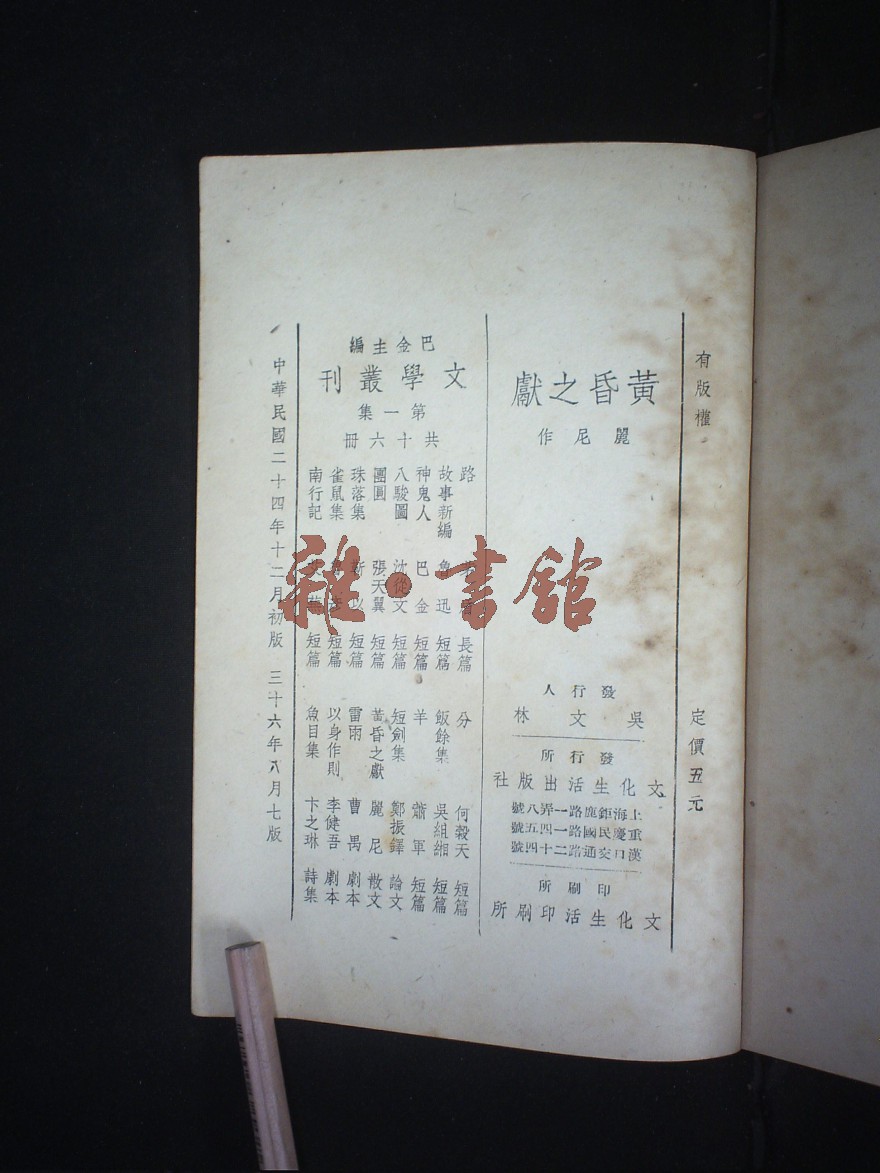 有版權
定價五元
黃昏之獻
麗尼作
發行人
吳文林
發行所
文化生活出版社
上海鉅鹿路一弄八號
重慶民國路一四五號
漢口交通路二十四號
印刷所
文化生活印刷所
巴金主編
文學叢刊
第一集
共十六冊
路 長篇
故事新編 魯迅 短篇
神鬼人 巴金 短篇
八駿圖 沈從文 短篇
團圓 張天翼 短篇
珠落集 靳以 短篇
雀鼠集 短篇
南行記 艾蕪 短篇
分 何穀天 短篇
飯餘集 吳組緗 短篇
羊 蕭軍 短篇
短劍集 鄭振鐸 論文
黃昏之獻 麗尼 散文
雷雨 曹禺 劇本
以身作則 李健吾 劇本
魚目集 卞之琳 詩集
中華民國二十四年十二月初版 三十六年八月七版
雜·書館